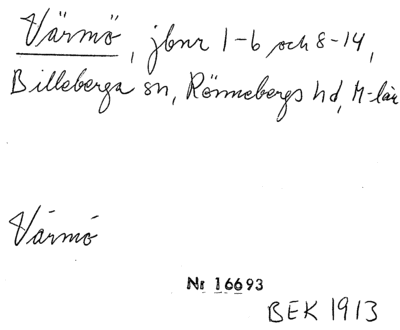 Värmö, jbnr 1-6 och 8-14,
Billeberga sn, Rönnebergs hd, M-län
Värmö
Nr 16693
BEK 1913